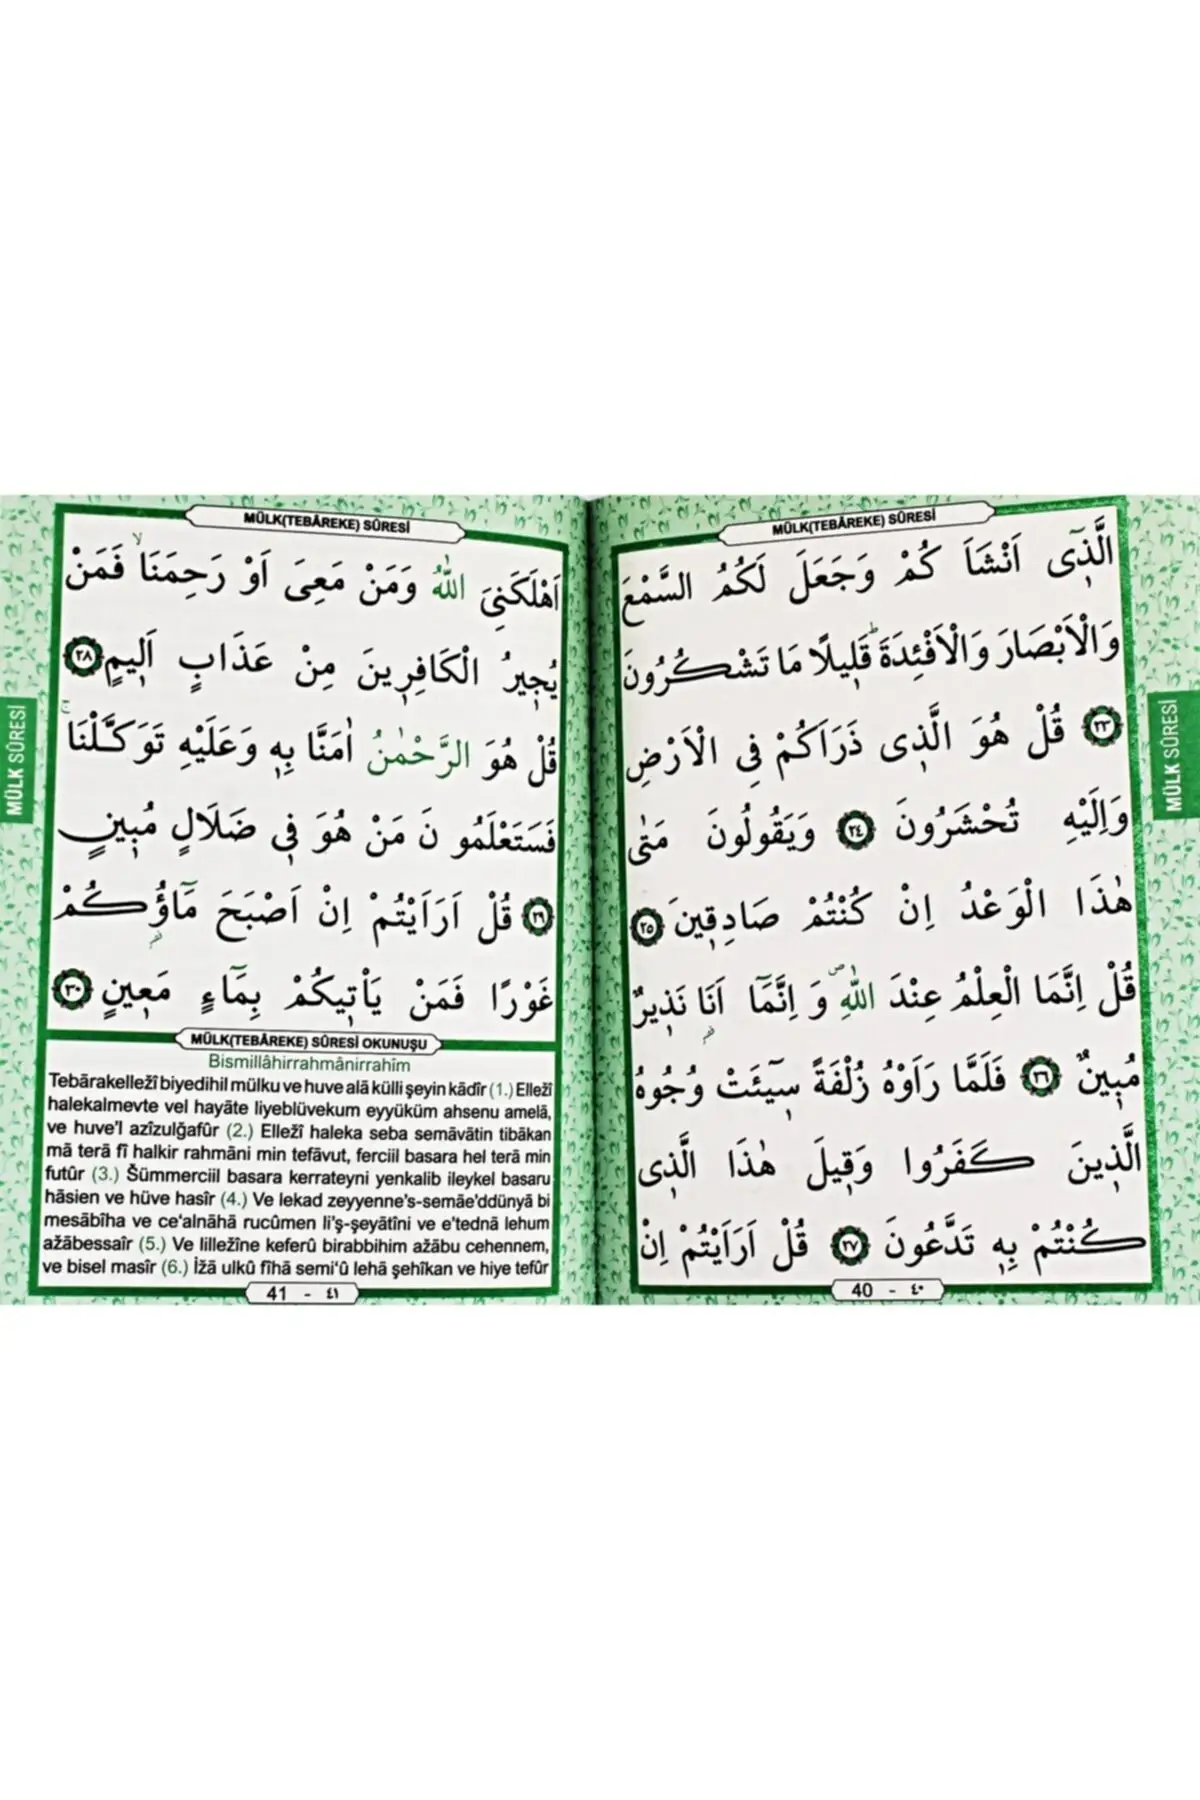 MÜLK(TEBÂREKE) SÛRESİ
الَّذ۪ٓى اَنْشَاَ كُمْ وَجَعَلَ لَكُمُ السَّمْعَ
وَالْاَبْصَارَ وَالْاَفْئِدَةَۜ قَل۪يلًا مَا تَشْكُرُونَ
﴿٢٣﴾ قُلْ هُوَ الَّذ۪ى ذَرَاَكُمْ فِى الْاَرْضِ
وَاِلَيْهِ تُحْشَرُونَ ﴿٢٤﴾ وَيَقُولُونَ مَتٰى
هٰذَا الْوَعْدُ اِنْ كُنْتُمْ صَادِق۪ينَ ﴿٢٥﴾
قُلْ اِنَّمَا الْعِلْمُ عِنْدَ اللّٰهِۖ وَ اِنَّمَٓا اَنَا نَذ۪يرٌ
مُب۪ينٌ ﴿٢٦﴾ فَلَمَّا رَاَوْهُ زُلْفَةً س۪ٓيئَتْ وُجُوهُ
الَّذ۪ينَ كَفَرُوا وَق۪يلَ هٰذَا الَّذ۪ى
كُنْتُمْ بِه۪ تَدَّعُونَ ﴿٢٧﴾ قُلْ اَرَاَيْتُمْ اِنْ
40 - ٤٠
MÜLK SÛRESİ
MÜLK(TEBÂREKE) SÛRESİ
اَهْلَكَنِىَ اللّٰهُ وَمَنْ مَعِىَ اَوْ رَحِمَنَاۙ فَمَنْ
يُج۪يرُ الْكَافِر۪ينَ مِنْ عَذَابٍ اَل۪يمٍ ﴿٢٨﴾
قُلْ هُوَ الرَّحْمٰنُ اٰمَنَّا بِه۪ وَعَلَيْهِ تَوَكَّلْنَاۚ
فَسَتَعْلَمُو نَ مَنْ هُوَ ف۪ى ضَلَالٍ مُب۪ينٍ
﴿٢٩﴾ قُلْ اَرَاَيْتُمْ اِنْ اَصْبَحَ مَٓاؤُكُمْ
غَوْرًا فَمَنْ يَاْت۪يكُمْ بِمَٓاءٍ مَع۪ينٍ ﴿٣٠﴾
MÜLK(TEBÂREKE) SÛRESİ OKUNUŞU
Bismillâhirrahmânirrahîm
Tebârakellezî biyedihil mülku ve huve alâ külli şeyin kâdîr (1.) Ellezî
halekalmevte vel hayâte liyeblüvekum eyyüküm ahsenu amelâ,
ve huve'l azîzulğafûr (2.) Ellezî haleka seba semâvâtin tibâkan
mâ terâ fî halkir rahmâni min tefâvut, ferciil basara hel terâ min
futûr (3.) Šümmerciil basara kerrateyni yenkalib ileykel basaru
hâsien ve hüve hasîr (4.) Ve lekad zeyyenne's-semâe'ddünyâ bi
mesâbîha ve ce‘alnâhâ rucûmen li'ş-şeyâtîni ve e'tednâ lehum
ažâbessaîr (5.) Ve lilležîne keferû birabbihim ažâbu cehennem,
ve bisel masîr (6.) İžâ ulkû fîhâ semi‘û lehâ şehîkan ve hiye tefûr
41 - ٤١
MÜLK SÛRESİ